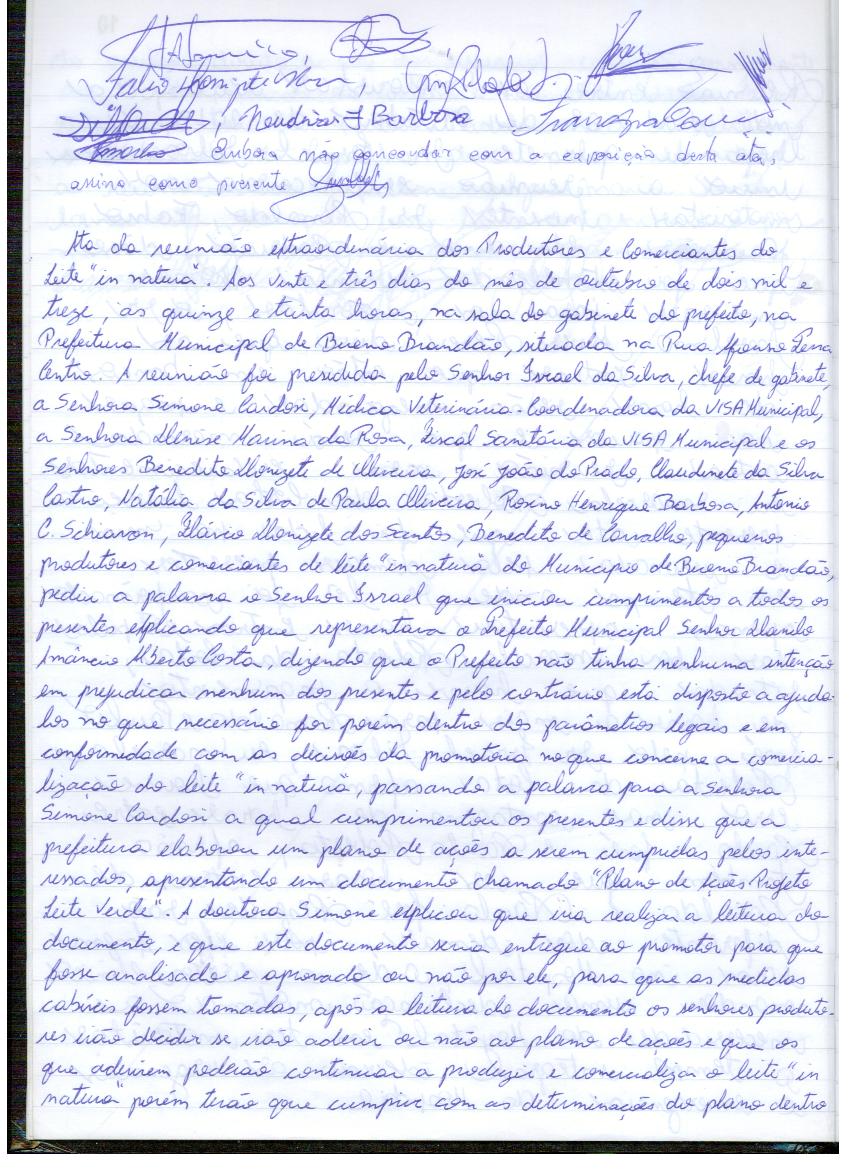 Neudivar J Barbosa
Embora não concordar com a exposição desta ata,
assino como presente
Ata da reunião extraordinária dos Produtores e Comerciantes do
Leite "in natura". Aos vinte e três dias do mês de outubro de dois mil e
treze, às quinze e trinta horas, na sala do gabinete do prefeito, na
Prefeitura Municipal de Bueno Brandão, situada na Rua Afonso Pena
Centro. A reunião foi presidida pelo Senhor Israel da Silva, chefe de gabinete,
a Senhora Simone Cardosi, Médica Veterinária - Coordenadora da VISA Municipal,
a Senhora Denise Marina da Rosa, Fiscal Sanitária da VISA Municipal e os
Senhores Benedito Donizete de Oliveira, José João do Prado, Claudinete da Silva
Castro, Natália da Silva de Paula Oliveira, Rosino Henrique Barbosa, Antonio
C. Schiavon, Flávio Donizete dos Santos, Benedito de Carvalho, pequenos
produtores e comerciantes de leite "in natura" do Município de Bueno Brandão,
pediu a palavra o Senhor Israel que iniciou cumprimentos a todos os
presentes explicando que representava o Prefeito Municipal Senhor Danilo
Amâncio Alberto Costa, dizendo que o Prefeito não tinha nenhuma intenção
em prejudicar nenhum dos presentes e pelo contrário está disposto a ajuda-
los no que necessário for porém dentro dos parâmetros legais e em
conformidade com as decisões da promotoria no que concerne a comercia-
lização do leite "in natura", passando a palavra para a Senhora
Simone Cardosi a qual cumprimentou os presentes e disse que a
prefeitura elaborou um plano de ações a serem cumpridas pelos inte-
ressados, apresentando um documento chamado "Plano de Ações Projeto
Leite Verde". A doutora Simone explicou que iria realizar a leitura do
documento, e que este documento seria entregue ao promotor para que
fosse analisado e aprovado ou não por ele, para que as medidas
cabíveis fossem tomadas, após a leitura do documento os senhores produto-
res irão decidir se irão aderir ou não ao plano de ações e que os
que aderirem poderão continuar a produzir e comercializar o leite "in
natura" porém terão que cumprir com as determinações do plano dentro